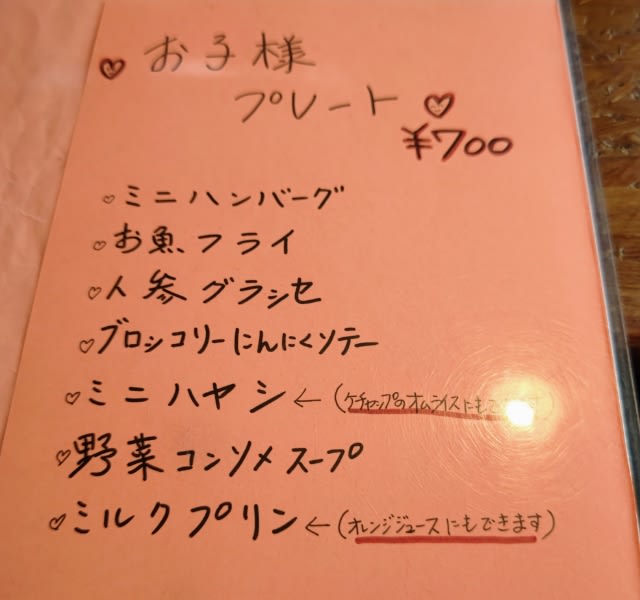 お子様
プレート
¥700
ミニハンバーグ
お魚フライ
人参グラシセ
ブロッコリーにんにくソテー
ミニハヤシ ← (ケチャップのオムライスにも
野菜コンソメスープ
ミルクプリン ← (オレンジジュースにもできます)